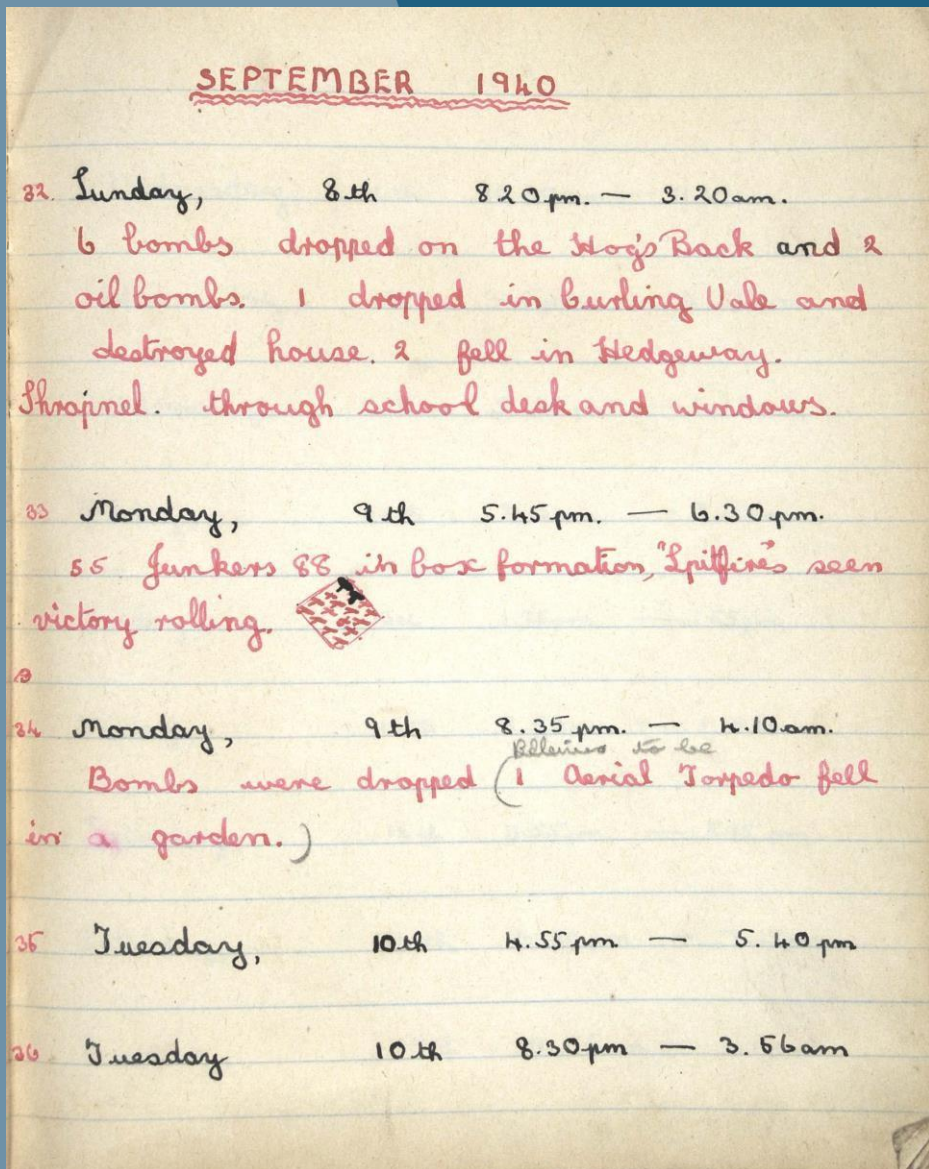 SEPTEMBER 1940
32. Sunday, 8th 8 20pm. — 3.20am.
6 bombs dropped on the Hog's Back and 2
oil bombs. 1 dropped in Curling Vale and
destroyed house. 2 fell in Hedgeway.
Shrapnel. through school desk and windows.
33 Monday, 9th 5.45pm. — 6.30pm.
55 Junkers 88 in box formation, "Spitfires" seen
victory rolling.
34 Monday, 9th 8.35pm. — 4.10am.
to be
Bombs were dropped (1 Aerial Torpedo fell
in a garden.)
35 Tuesday, 10th 4.55pm — 5.40pm
36 Tuesday 10th 8.30pm — 3.56am